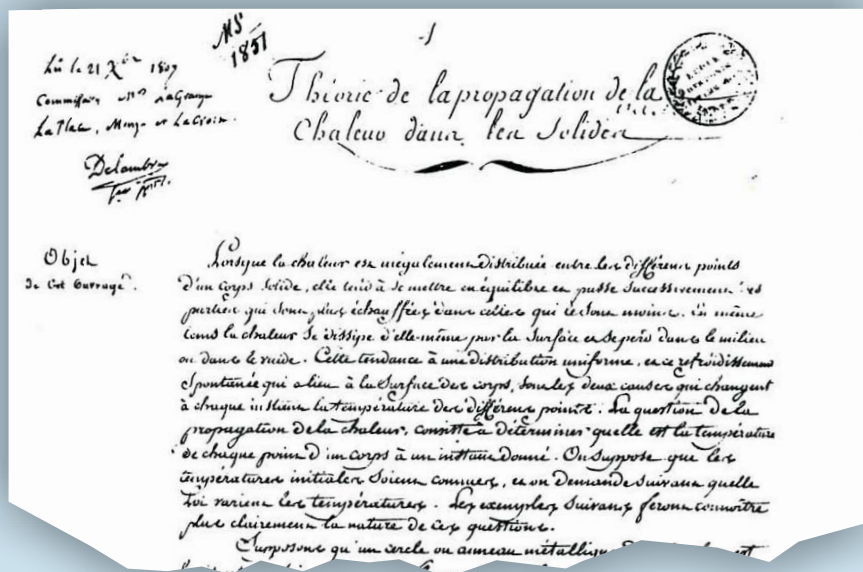 MS
1851
1
Lû le 21 Xbre 1807
Commissaires Mrs LaGrange
LaPlace, Monge et LaCroix.
Delambre
Théorie de la propagation de la
Chaleur dans les solides
Objet
de Cet Ouvrage.
Lorsque la chaleur est inégalement distribuée entre les différens points
d'un corps solide, elle tend à se mettre en équilibre et passe successivement des
parties qui sont plus échauffées dans celles qui le sont moins. En même
tems la chaleur se dissipe d'elle-même par la surface et se perd dans le milieu
ou dans le vuide. Cette tendance à une distribution uniforme, et ce refroidissement
spontanée qui a lieu à la surface des corps, sont les deux causes qui changent
à chaque instant la température des différens points. La question de la
propagation de la chaleur, consiste à déterminer quelle est la température
de chaque point d'un corps à un instant donné. On suppose que les
températures initiales soient connues, et on demande suivant quelle
Loi varient les températures. Les exemples suivans feront connoître
plus clairement la nature de ces questions.
Supposons qu'un cercle ou anneau métallique est